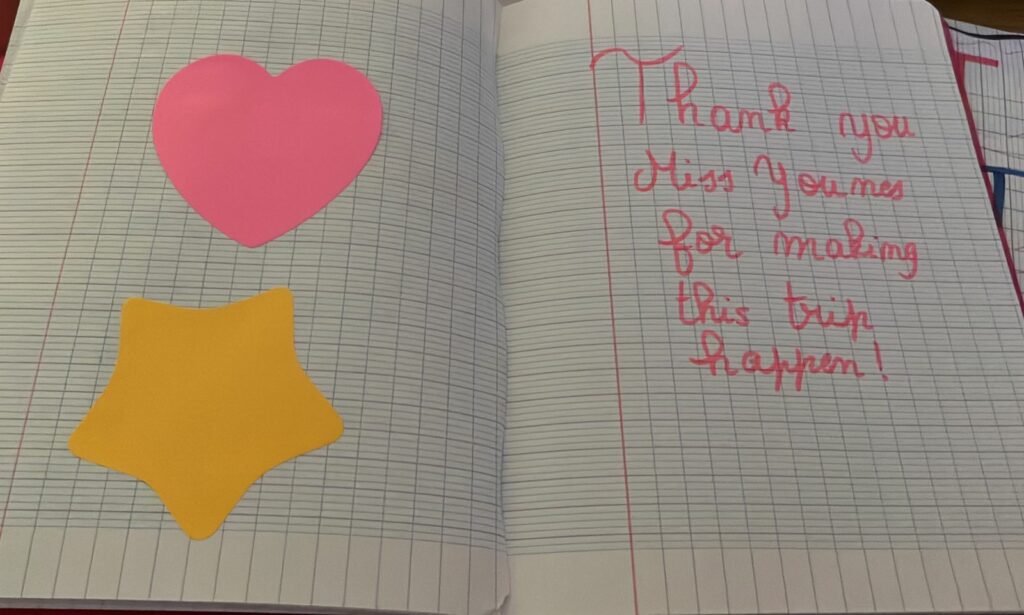 Thank you
Miss Younes
for making
this trip
happen!